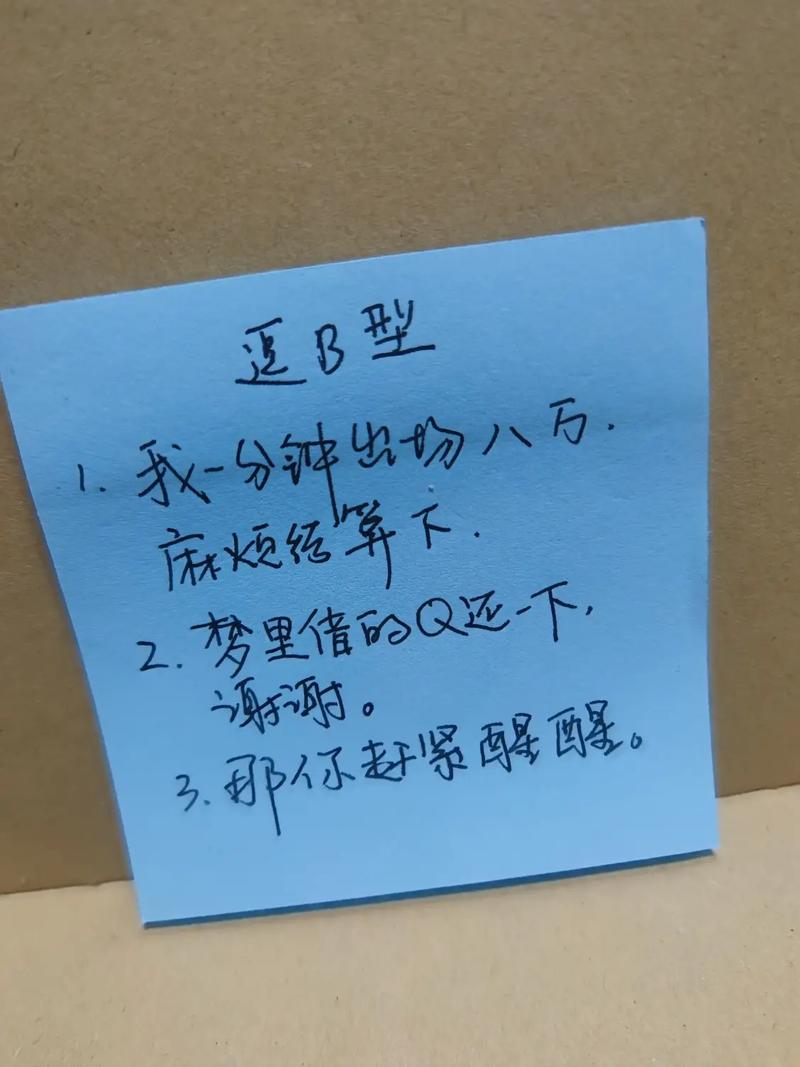 逗B型
1. 我一分钟出场八万.
麻烦结算下.
2. 梦里借的Q还一下,
谢谢。
3. 那你赶紧醒醒。